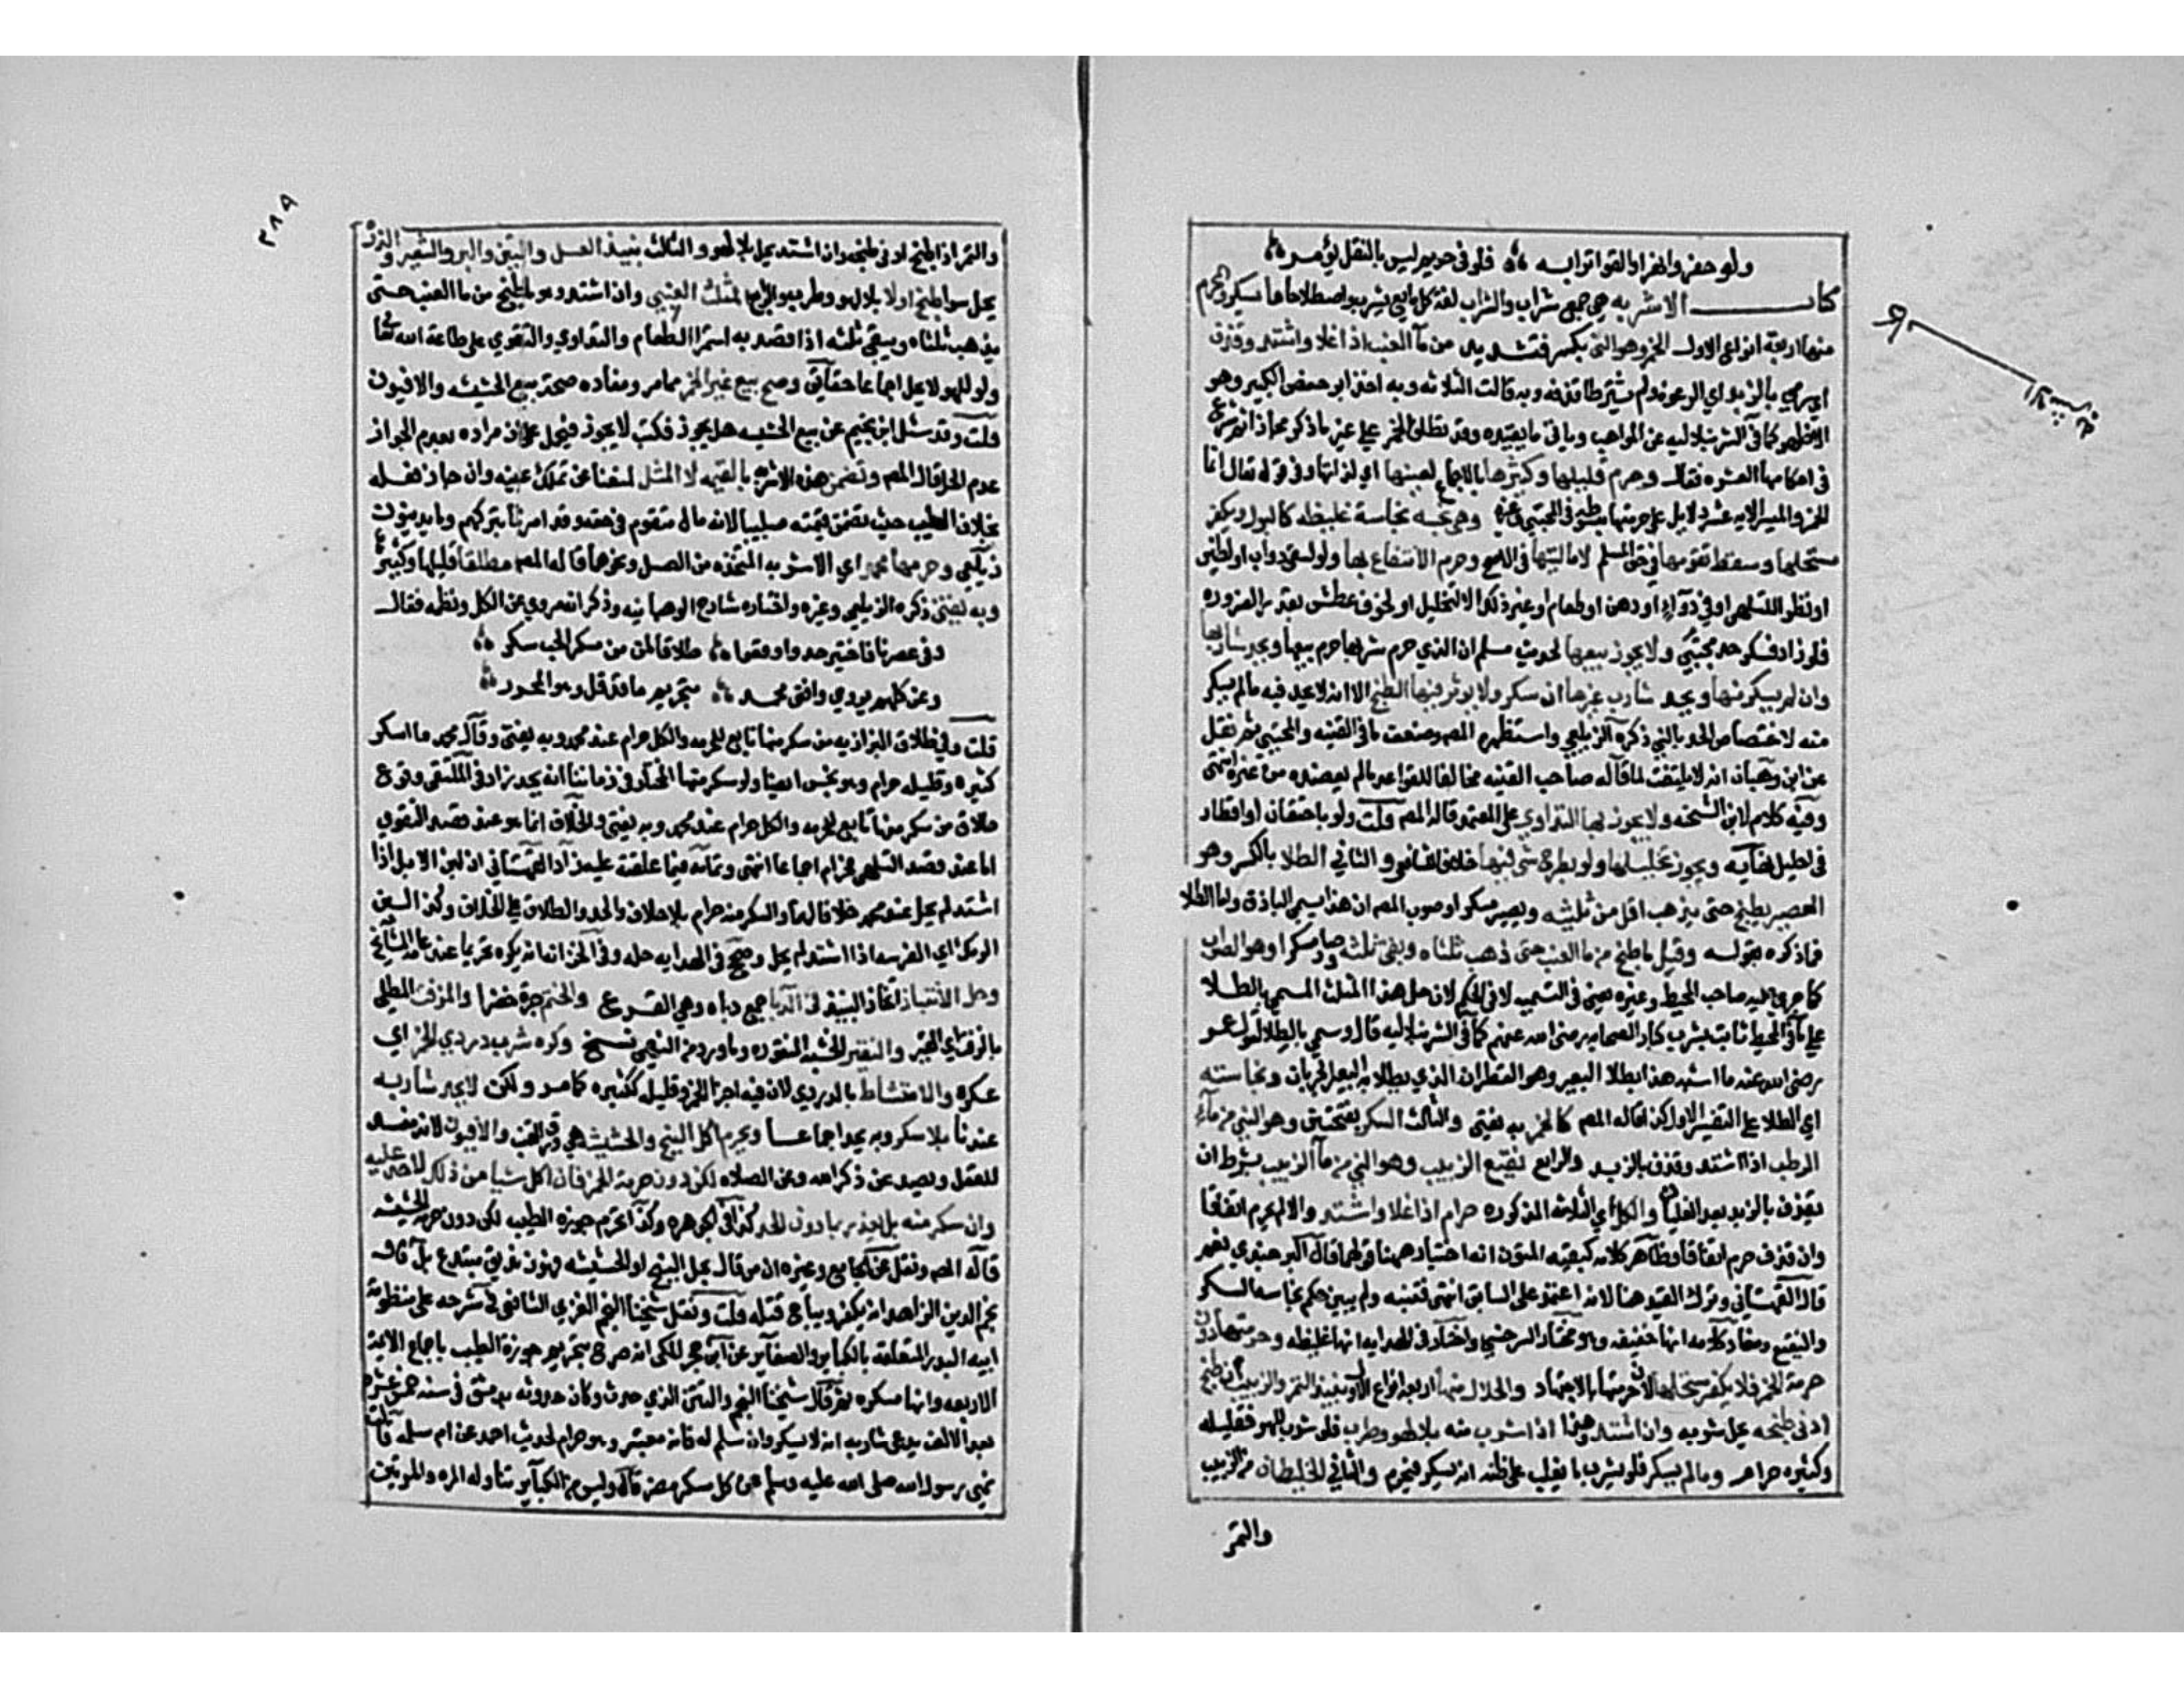 ولو حفروا نهرا والقوا ترابه فلو في حريم ليس بالنقل يؤمر
كتاب الاشربه هي جمع شراب والشراب لغة كل مايع يشرب واصطلاحا ما يسكر والمحرم
منها اربعة انواع الاول الخمر وهو الني بكسر فتشديد من ماء العنب اذا غلا واشتد وقذف
اي رمي بالزبد اي الرغوه ولم يشترطا قذفه وبه قالت الثلاثه وبه اخذ ابو حفص الكبير وهو
الاظهر كما في الشرنبلاليه عن المواهب وياتي ما يفيده وقد تطلق الخمر علي غير ما ذكر مجازا ثم شرع
في احكامها العشره فقال وحرم قليلها وكثيرها بالاجماع لعينها اي لذاتها وفي قوله تعالى انما
الخمر والميسر الايه عشر دلايل على حرمتها مبسوطه في المجتبي وغيره وهي نجسه نجاسة غليظه كالبول ويكفر
مستحلها وسقط تقومها في حق المسلم لا ماليتها في الاصح وحرم الانتفاع بها ولو لسقي دواب او لطين
او نظر للتلهي او في دواء او دهن او طعام او غير ذلك الا لتخليل او لخوف عطش بقدر الضروره
فلو زاد فسكر حد مجتبي ولا يجوز بيعها لحديث مسلم ان الذي حرم شربها حرم بيعها ويحد شاربها
وان لم يسكر منها ويحد شارب غيرها ان سكر ولا يوثر فيها الطبخ الا انه لا يحد فيه مالم يسكر
منه لاختصاص الحد بالني ذكره الزيلعي واستظهره المص وضعف ما في القنيه والمجتبي ثم نقل
عن ابن وهبان انه لا يلتفت لما قاله صاحب القنيه مخالفا للقواعد مالم يعضده من غيره انتهى
وفيه كلام لابن الشحنه ولا يجوز بها التداوي على المعتمد قاله المص قلت ولو باحتقان او اقطار
في احليل نهايه ويجوز تخليلها ولو بطرح شي فيها خلافا للشافعي والثاني الطلا بالكسر وهو
العصير يطبخ حتى يذهب اقل من ثلثيه ويصير مسكرا وصوب المص ان هذا يسمي الباذق واما الطلا
فما ذكره بقوله وقيل ما طبخ من ماء العنب حتى ذهب ثلثاه وبقي ثلثه وصار مسكرا وهو الصواب
كما جري عليه صاحب المحيط وغيره يعني في التسميه لا في الحكم لان حل هذا المثلث المسمي بالطلا
على ما في المحيط ثابت بشرب كبار الصحابه رضي الله عنهم كما في الشرنبلاليه قال وسمي بالطلا لقول عمر
رضي الله عنه ما اشبه هذا بطلا البعير وهو القطران الذي يطلا به البعير الجربان ونجاسته
اي الطلا على التفسير الاول كذا قاله المص كالخمر به يفتي والثالث السكر بفتحتين وهو الني من ماء
الرطب اذا اشتد وقذف بالزبد والرابع نقيع الزبيب وهو الني من ماء الزبيب بشرط ان
يقذف بالزبد بعد الغليان والكل اي الثلاثه المذكوره حرام اذا غلا واشتد والا لم يحرم اتفاقا
وان قذف حرم اتفاقا وظاهر كلامه كبقيه المتون انه اختيار ههنا قولهما قاله البرجندي نعم
قال القهستاني وترك القيد هنا لانه اعتمد على السابق انتهى فتنبه ولم يبين حكم نجاسه السكر
والنقيع ومفاد كلامه انها خفيفه وهو مختار السرخسي واختار في الهدايه انها غليظه وحرمتها دون
حرمة الخمر فلا يكفر مستحلها لان حرمتها بالاجتهاد والحلال منها اربعه انواع الاول نبيذ التمر والزبيب ان طبخ
ادنى طبخه يحل شربه وان اشتد وهذا اذا شرب منه بلا لهو وطرب فلو شرب للهو فقليله
وكثيره حرام ومالم يسكر فلو شرب ما يغلب على ظنه انه يسكر فيحرم والثاني الخليطان من الزبيب
والتمر
٢٨٩
والتمر اذا طبخ ادنى طبخه وان اشتد يحل بلا لهو والثالث نبيذ العسل والتين والبر والشعير والذرة
يحل سوا طبخ او لا بلا لهو وطرب والرابع المثلث العنبي وان اشتد وهو ما طبخ من ماء العنب حتى
يذهب ثلثاه ويبقى ثلثه اذا قصد به استمرا الطعام والتداوي والتقوي على طاعة الله تعالى
ولو للهو لا يحل اجماعا حقايق وصح بيع غير الخمر مما مر ومفاده صحة بيع الحشيشه والافيون
قلت وقد سئل ابن نجيم عن بيع الحشيشه هل يجوز فكتب لا يجوز فيحمل على ان مراده بعدم الجواز
عدم الحل قال المص وتضمن هذه الاشربه بالقيمه لا المثل لمنعنا عن تملك عينه وان جاز فعله
بخلاف الصليب حيث تضمن قيمته صليبا لانه مال متقوم في حقه وقد امرنا بتركهم وما يدينون
زيلعي وحرمها محمد اي الاشربه المتخذه من العسل ونحوها قاله المص مطلقا قليلها وكثيرها
وبه يفتى ذكره الزيلعي وغيره واختاره شارح الوهبانيه وذكر انه مروي عن الكل ونظمه فقال
وفي عصرنا فاختير حد واوقعوا طلاقا لمن من مسكر الحب سكر
وعن كلهم يروي وافتى محمد بتحريم ما قد قل وهو المحرر
قلت وفي طلاق البزازيه من سكر منها تابع للحرمه والكل حرام عند محمد وبه يفتى وقال محمد ما اسكر
كثيره وقليله حرام وهو نجس ايضا ولو سكر منها المختار في زماننا انه يحد زاد في الملتقى ووقوع
طلاق من سكر منها تابع للحرمه والكل حرام عند محمد وبه يفتى والخلاف انما هو عند قصد التقوي
اما عند قصد التلهي فحرام اجماعا انتهى وتمامه فيما علقته عليه زاد القهستاني ان لبن الابل اذا
اشتد لم يحل عند محمد خلافا لهما والسكر منه حرام بلا خلاف والحد والطلاق على الخلاف وكذا لبن
الرمكه اي الفرسه اذا اشتد لم يحل وصحح في الهدايه حله وفي الخزانه انه يكره تحريما عند عامه المشايخ
وحل الانتباذ اتخاذ النبيذ في الدبا جمع دباه وهي القرع والحنتم جرة خضرا والمزفت المطلي
بالزفت اي القير والنقير الخشبه المنقوره وما ورد من النهي نسخ وكره شرب دردي الخمر اي
عكره والامتشاط بالدردي لان فيه اجزا الخمر وقليله ككثيره كما مر ولكن لا يحد شاربه
عندنا بلا سكر وبه يحد اجماعا ويحرم اكل البنج والحشيشه هي ورق القنب والافيون لانه مفسد
للعقل ويصد عن ذكر الله وعن الصلاه لكن دون حرمة الخمر فان اكل شيا من ذلك لا حد عليه
وان سكر منه بل يعذر بما دون الحد كذا في الجوهره وكذا تحرم جوزه الطيب لكن دون حرمة الحشيشه
قاله المص ونقل عن الجامع وغيره ان من قال بحل البنج او الحشيشه فهو زنديق مبتدع بل قال
نجم الدين الزاهد انه يكفر ويباح قتله قلت ونقل شيخنا النجم الغزي الشافعي في شرحه على منظومة
ابيه البدر المتعلقه بالكباير والصغاير عن ابن حجر المكي انه صرح بتحريم جوزة الطيب باجماع الايمة
الاربعه وانها مسكره ثم قال شيخنا النجم والتتن الذي حدث وكان حدوثه بدمشق في سنه خمس عشرة
بعد الالف يدعي شاربه انه لا يسكر وان سلم له فانه مفتر وهو حرام لحديث احمد عن ام سلمه قالت
نهى رسول الله صلى الله عليه وسلم عن كل مسكر ومفتر قال وليس من الكباير تناوله المره والمرتين